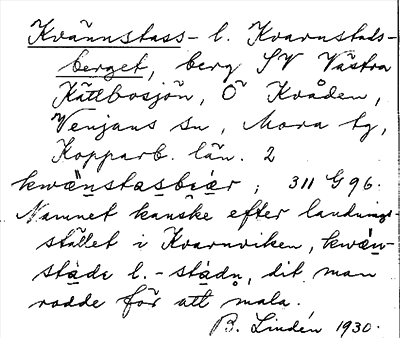 Kvännstass- l. Kvarnstads-
berget, berg SV Västra
Kättbosjön, Ö Kvåden,
Venjans sn, Mora tg,
Kopparb. län. 2
kwä̀nstasbiär; 311 G 96.
Namnet kanske efter landnings-
stället i Kvarnviken, kwän-
städe l. -städn, dit man
rodde för att mala.
B. Lindén 1930.